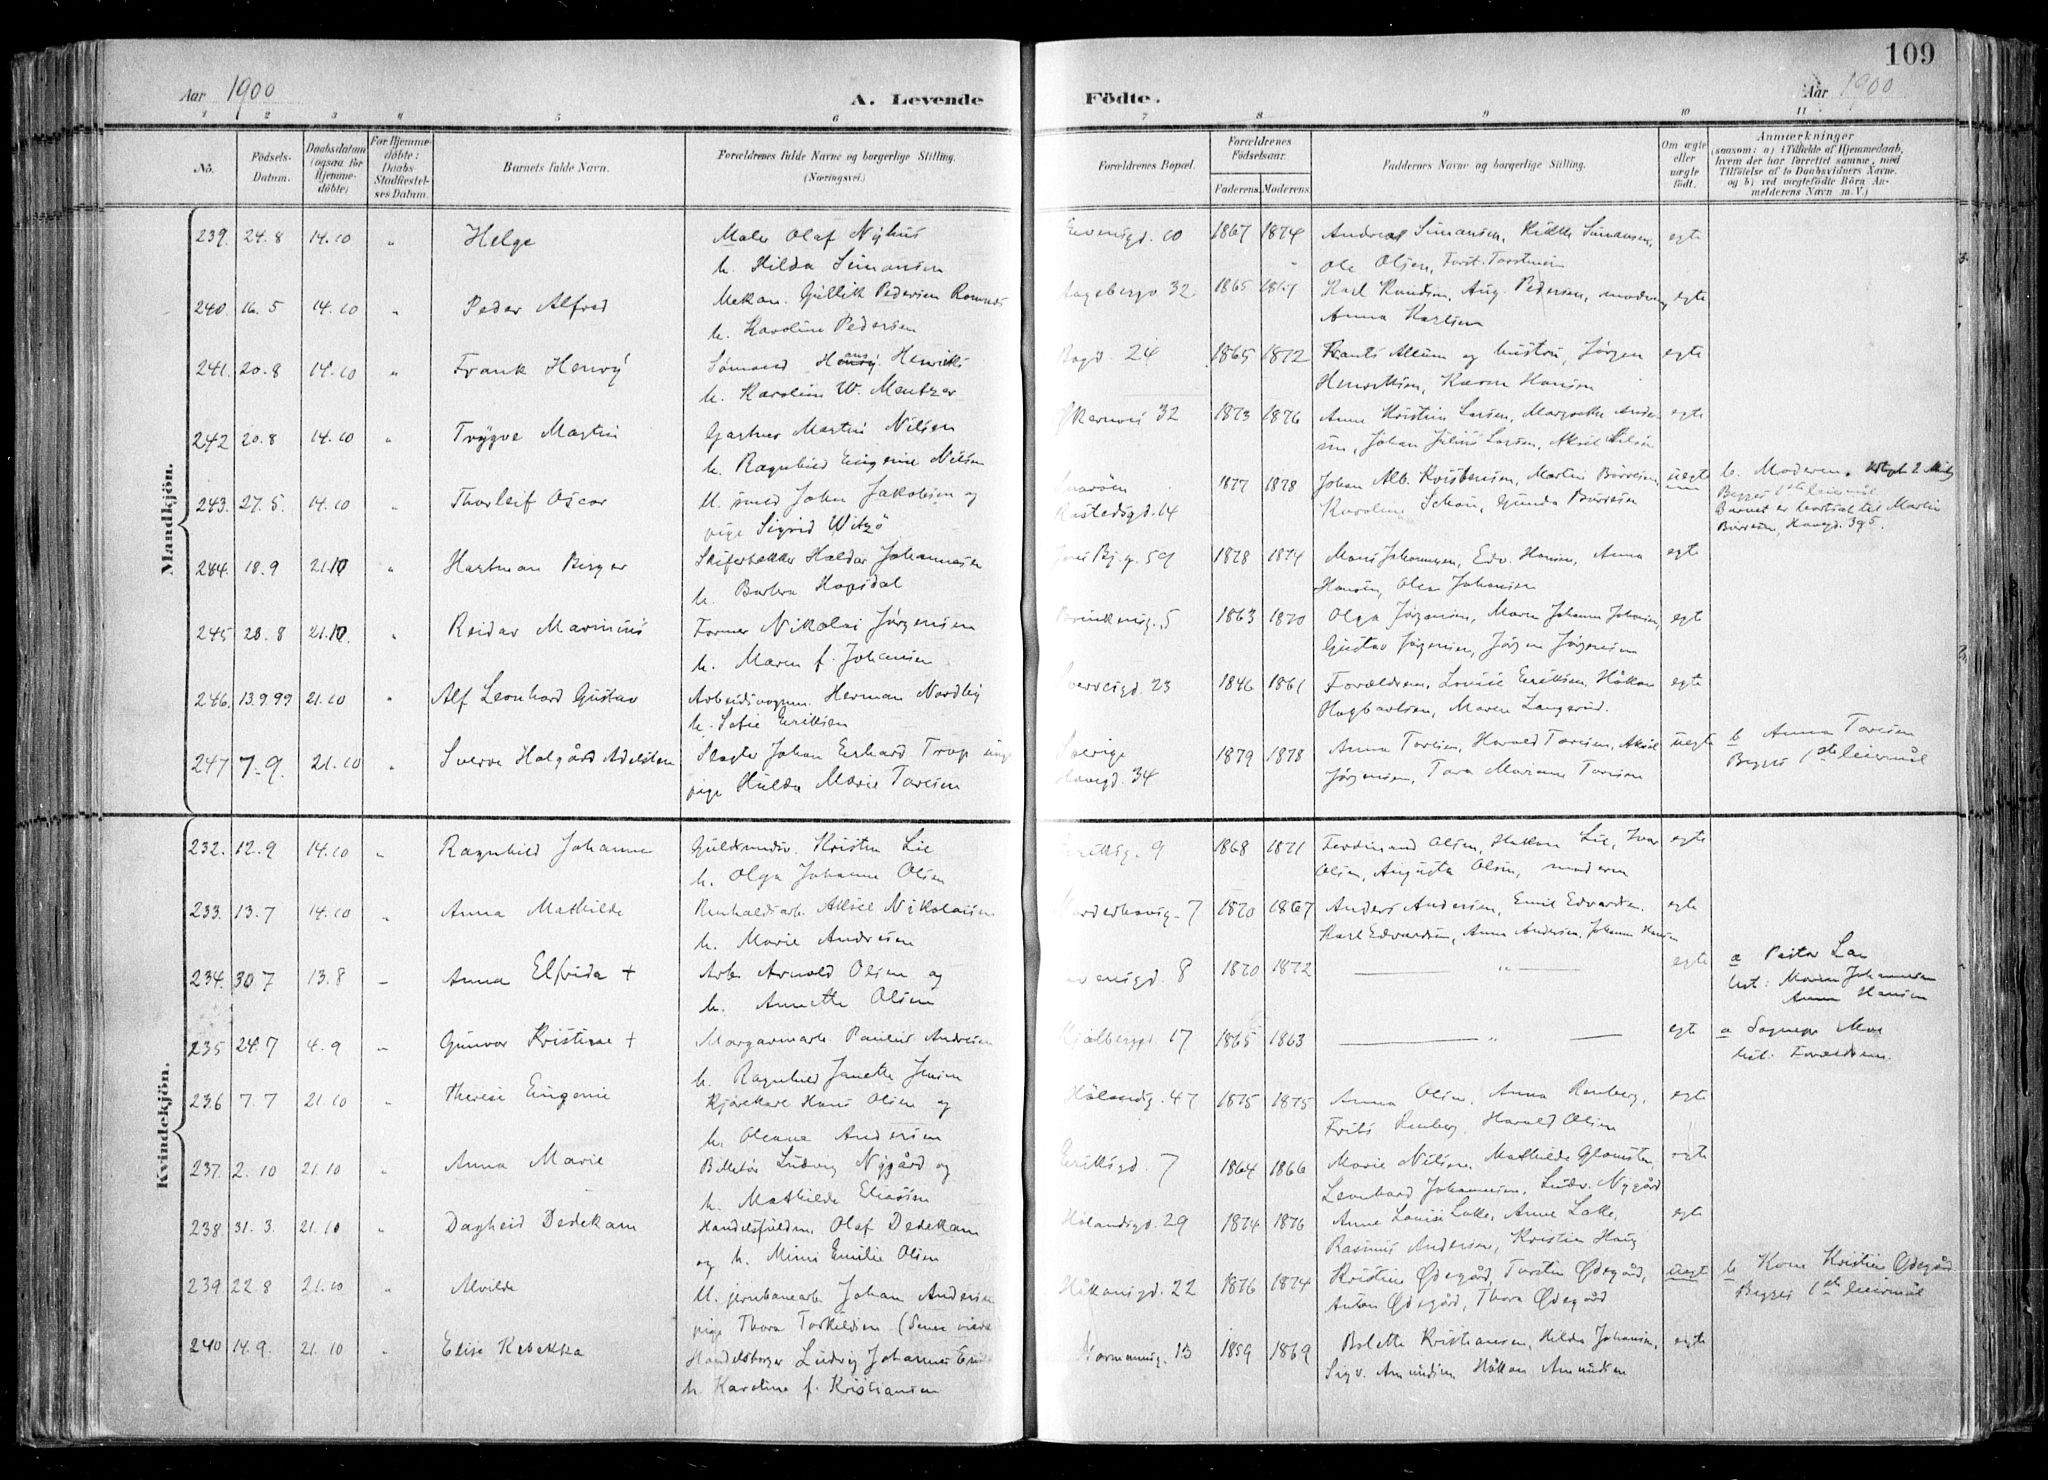 109
Aar 1900
A. Levende
Födte.
Aar 1900
1 2 3 4 5 6 7 8 9 10 11
No.
Födsels-Datum.
Daabsdatum (ogsaa for Hjemmedöbte)
For Hjemmedöbte: Daabs-Stadfæstelses Datum.
Barnets fulde Navn.
Forældrenes fulde Navne og borgerlige Stilling. (Næringsvei.)
Forældrenes Bopæl.
Forældrenes Födselsaar.
Faderens. Moderens.
Faddernes Navne og borgerlige Stilling.
Om ægte eller uægte födt.
Anmærkninger
(saasom: a) i Tilfælde af Hjemmedaab, hvem der har forrettet samme, med Tilföielse af to Daabsvidners Navne, og b) ved uægtefödte Börn Anmelderens Navn m. V.)
Mandkjön.
239. 24.8 14.10 " Helge Maler Olaf Nyhus 10 1867 1874 Andreas Simansen, Simansen, egte
h. Hilda Simansen Ole Olsen,
240. 16.5 14.10 " Peder Alfred Mekan. Gullik Pedersen 32 1865 Karl Knudsen, Aug. Pedersen, moderen, egte
h. Karoline Pedersen Anna Karlsen
241. 20.8 14.10 " Frank Henry Sømand Hans Henriks 24 1865 1872 Frants Allum og hustru, Jørgen egte
h. Karoline W. Mentzer Henriksen, Karen Hansen
242 20.8 14.10 " Trygve Martin Gartner Martin Nilsen 32 1873 1876 Anne Kristine Larsen, Margrethe Ander- egte
h. Ragnhild Eugenie Nilsen sen, Johan Julius Larsen, Aksel Nilsen
243. 27.5 14.10 " Thorleif Oscar U. smed John Jakobsen og Snarøen 1877 1878 Johan Alb. Kristensen, Martin Børresen, uegte b. Moderen.
pige Sigrid Witzø Rastedsgd. 14 Karoline Schau, Gunda Børresen Begges 1ste leiermål
Barnet er bortsat til Martin
Børresen, Havngd. 39 5.
284. 18.9 21.10 " Hartman Birger Skifertækker Haldor Johannesen 59 1878 1874 Johannesen, Edv. Hansen, Anna egte
h. Barbera Hopsdal Hansen, Olea Johansen
245 28.8 21.10. " Reidar Marinius Former Nikolai Jørgensen 5 1863 1870 Olga Jørgensen, Maren Johanne Johansen, egte
h. Maren f. Johansen Gustav Jørgensen, Jørgen Jørgensen
246. 13.9.99 21.10 " Alf Leonhard Gustav Arbeidsvognm. Herman Nordby 23 1846 1861 Forældrene, Lovise Eriksen, Håkon egte
h. Sofie Eriksen Hagbartsen, Maren Langerud.
247 7.9. 21.10 " Sverre Halgård Adelsten Slagter Johan Erhard Trop ungk Sverige 1879 1878 Anna Toresen, Harald Toresen, Aksel uegte b Anna Toresen
pige Hulda Marie Toresen Havngd. 34 Jørgensen, Tora Mariane Toresen Begges 1ste leiermål
Kvindekjön.
232. 12.9 14.10 " Ragnhild Johanne Guldsmedsv. Kristen Lie 9 1868 1871 Ferdinand Olsen, Håkon Lie, Ivar egte
h. Olga Johanne Olsen Olsen, Augusta Olsen, moderen
233. 13.7 14.10 " Anna Mathilde Renholdsarb. Aksel Nikolaisen Norderhovsg. 7 1870 1867 Anders Andersen, Emil Edvardsen. egte
h. Marie Andresen Karl Edvardsen, Anna Andersen. Johanne Hansen
234. 30.7 13.8 " Anna Elfrida + Arb. Arnold Olsen og 8 1870 1872 " egte a Pastor Lau
h. Annette Olsen test: Maren Johannesen
Anna Hansen
235 24.7 4.9 " Gunvor Kristine + Margarinarb. Paulus Andresen Kjølberggd. 17 1865 1863 " egte a Sognepr Moe
h. Ragnhild Janette Jensen test. Forældrene.
236 7.7 21.10 " Therese Eugenie Kjørekarl Hans Olsen og Hølandsg. 47 1875 1875 Anna Olsen, Anna Renberg, egte
h. Oleane Andersen Frits Renberg, Harald Olsen
237. 2.10 21.10 " Anna Marie Billettør Ludvig Nygård og Eriksgd. 7 1864 1866 Marie Nilsen, Mathilde Glomsten, egte
h. Mathilde Eliassen Leonhard Johannesen, Ludv. Nygård
238. 31.3. 21.10 " Dagheid Dedekam Handelsfuldm. Olaf Dedekam Hølandsgd. 29 1874 1876 Anne Lovise Lakke, Anne Lakke, egte
og h. Mimi Emilie Olsen Rasmus Andersen, Kristen Haug
239. 22.8 21.10 " Alvilde U. jernbanearb. Johan Andersen Håkonsgd. 22 1876 1874 Kristine Ødegård, Torsten Ødegård, uegte b Kone Kristine Ødegård
pige Thora Torkildsen (Senere viede Anton Ødegård, Thora Ødegård Begges 1ste leiermål
240 14.9. 21.10 " Elise Rebekka Handelsborger Ludvig Johannes 13 1859 1869 Bolette Kristiansen, Hilda Johansen, egte
h. Karoline f. Kristiansen Sigv. Amundsen Håkon Amundsen